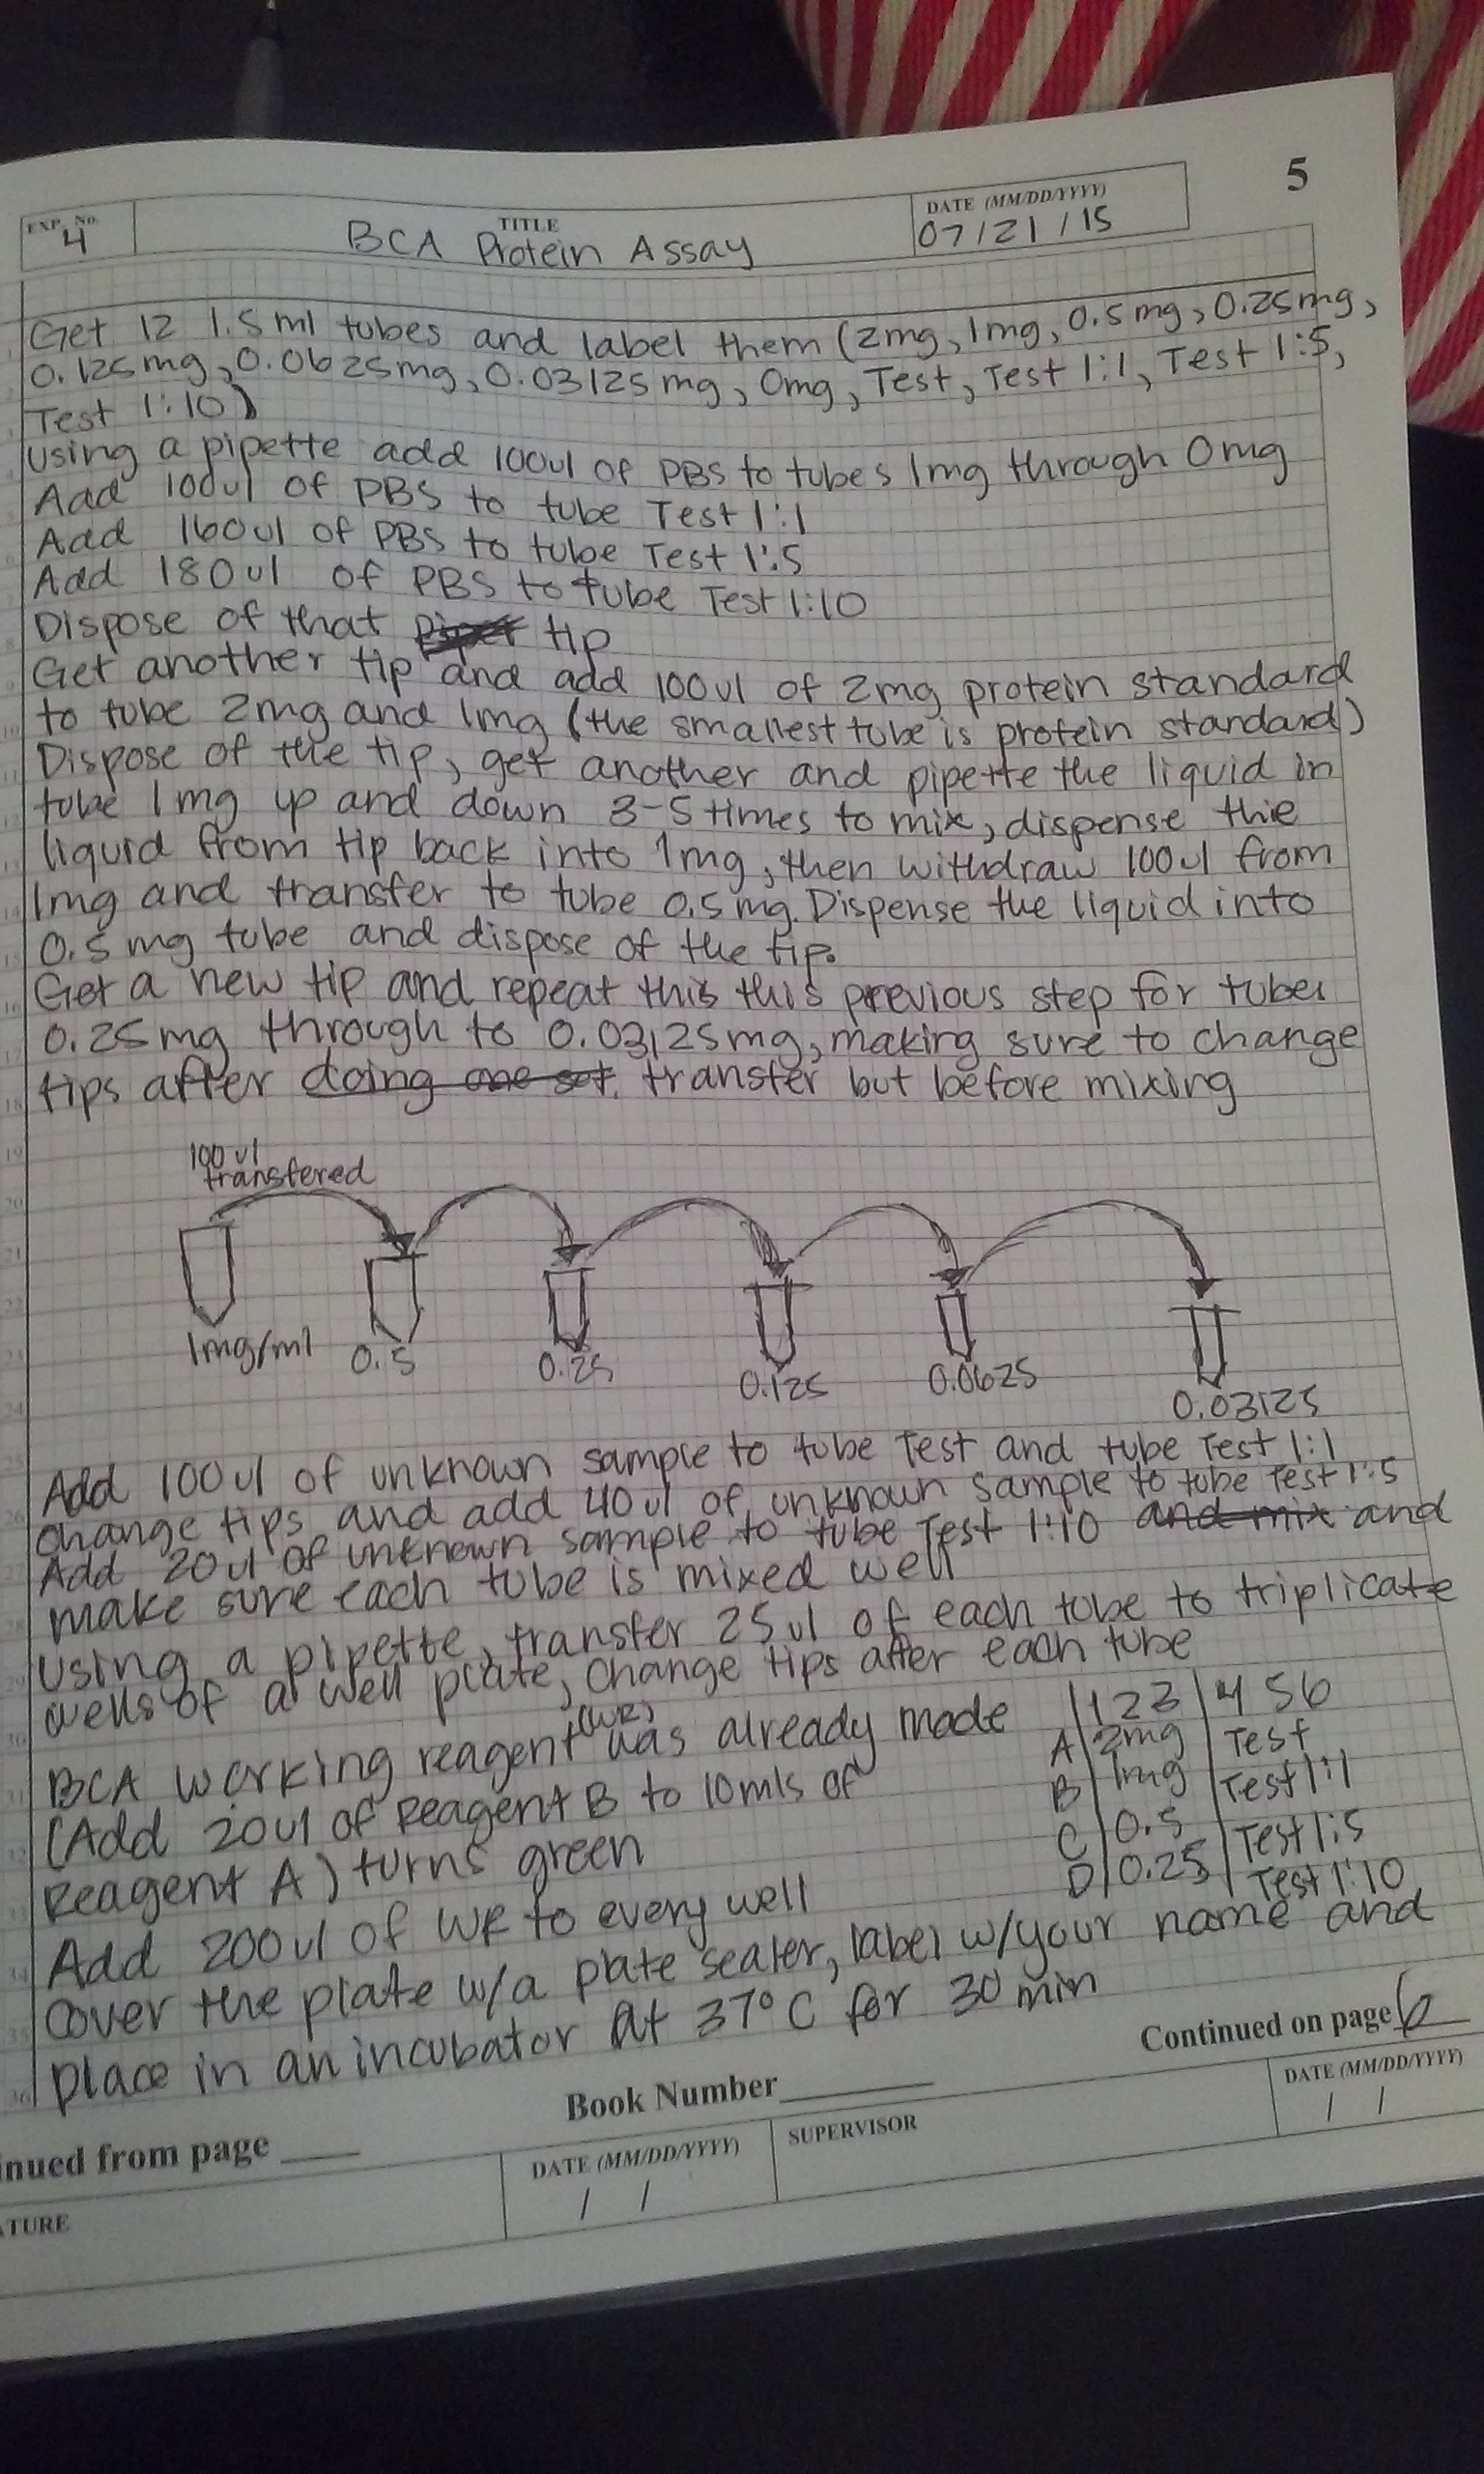 5
EXP. No.
4
TITLE
BCA Protein Assay
DATE (MM/DD/YYYY)
07/21/15
Get 12 1.5 ml tubes and label them (2mg, 1mg, 0.5 mg, 0.25mg,
0.125mg, 0.0625mg, 0.03125mg, 0mg, Test, Test 1:1, Test 1:5,
Test 1:10)
Using a pipette add 100ul of PBS to tubes 1mg through 0mg
Add 100ul of PBS to tube Test 1:1
Add 160ul of PBS to tube Test 1:5
Add 180ul of PBS to tube Test 1:10
Dispose of that tip
Get another tip and add 100ul of 2mg protein standard
to tube 2mg and 1mg (the smallest tube is protein standard)
Dispose of the tip, get another and pipette the liquid in
tube 1mg up and down 3-5 times to mix, dispense the
liquid from tip back into 1mg, then withdraw 100ul from
1mg and transfer to tube 0.5mg. Dispense the liquid into
0.5mg tube and dispose of the tip.
Get a new tip and repeat this this previous step for tubes
0.25mg through to 0.03125mg, making sure to change
tips after doing one set. transfer but before mixing
100 ul
transfered
1mg/ml
0.5
0.25
0.125
0.0625
0.03125
Add 100ul of unknown sample to tube Test and tube Test 1:1
change tips and add 40ul of unknown sample to tube Test 1:5
Add 20ul of unknown sample to tube Test 1:10 and mix and
make sure each tube is mixed well
Using a pipette, transfer 25ul of each tube to triplicate
wells of a well plate, change tips after each tube
BCA working reagent (WR) was already made
(Add 20ul of Reagent B to 10mls of
Reagent A) turns green
| 1 2 3 | 4 5 6
A | 2mg | Test
B | 1mg | Test 1:1
C | 0.5 | Test 1:5
D | 0.25 | Test 1:10
Add 200ul of WR to every well
Cover the plate w/a plate sealer, label w/your name and
place in an incubator at 37°C for 30 min
Continued on page 6
Book Number
inued from page
ATURE
DATE (MM/DD/YYYY)
/ /
SUPERVISOR
DATE (MM/DD/YYYY)
/ /